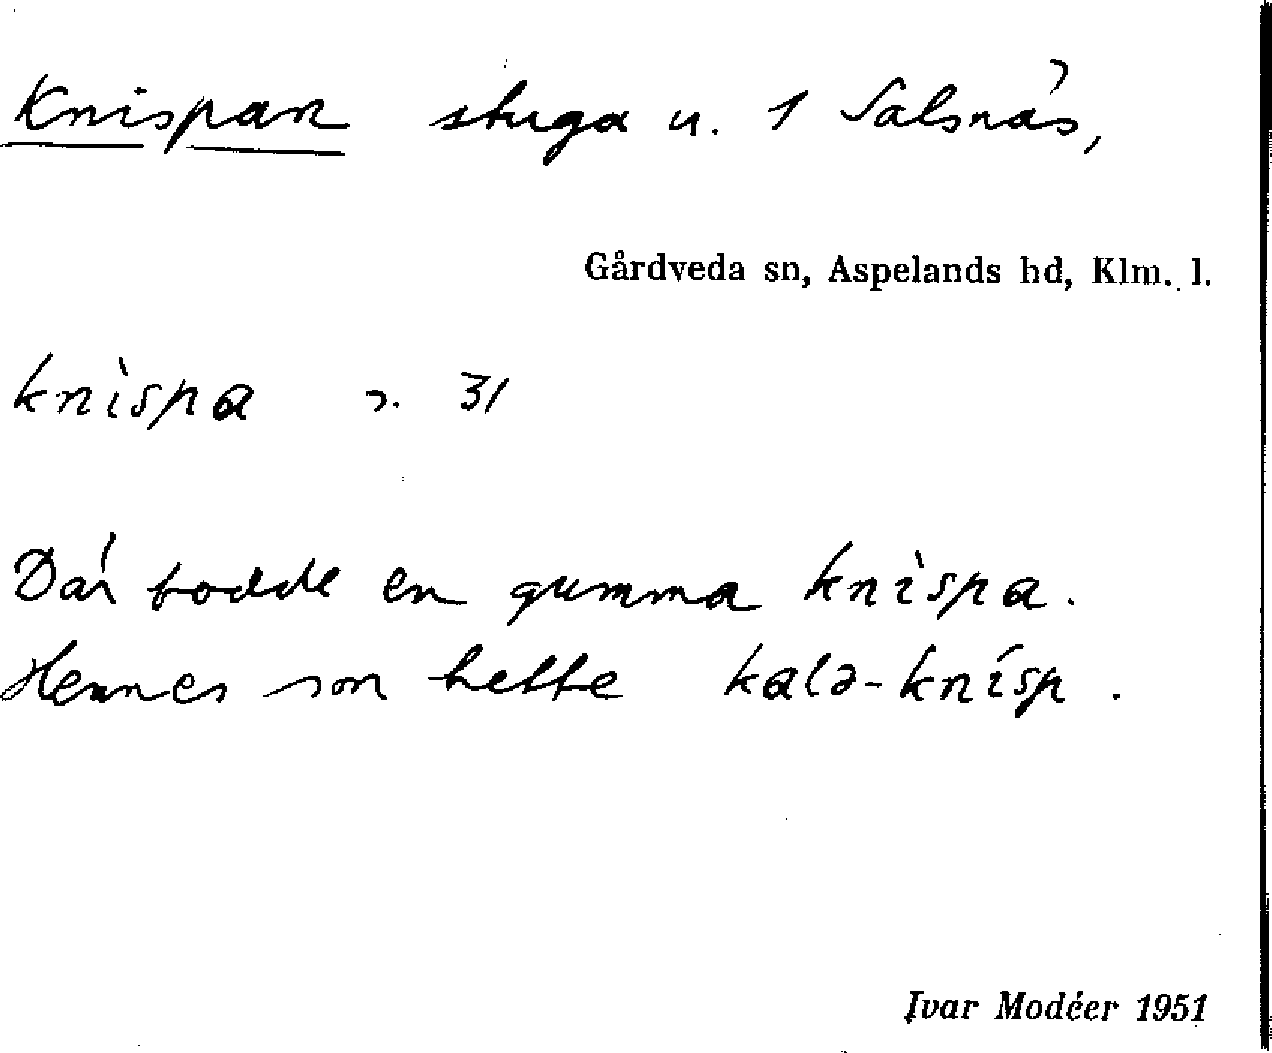 Knispan stuga u. 1 Salsnäs,
Gårdveda sn, Aspelands hd, Klm. l.
knìspa 31
Där bodde en gumma knìspa.
Hennes son hette kalə-knísp.
Ivar Modéer 1951